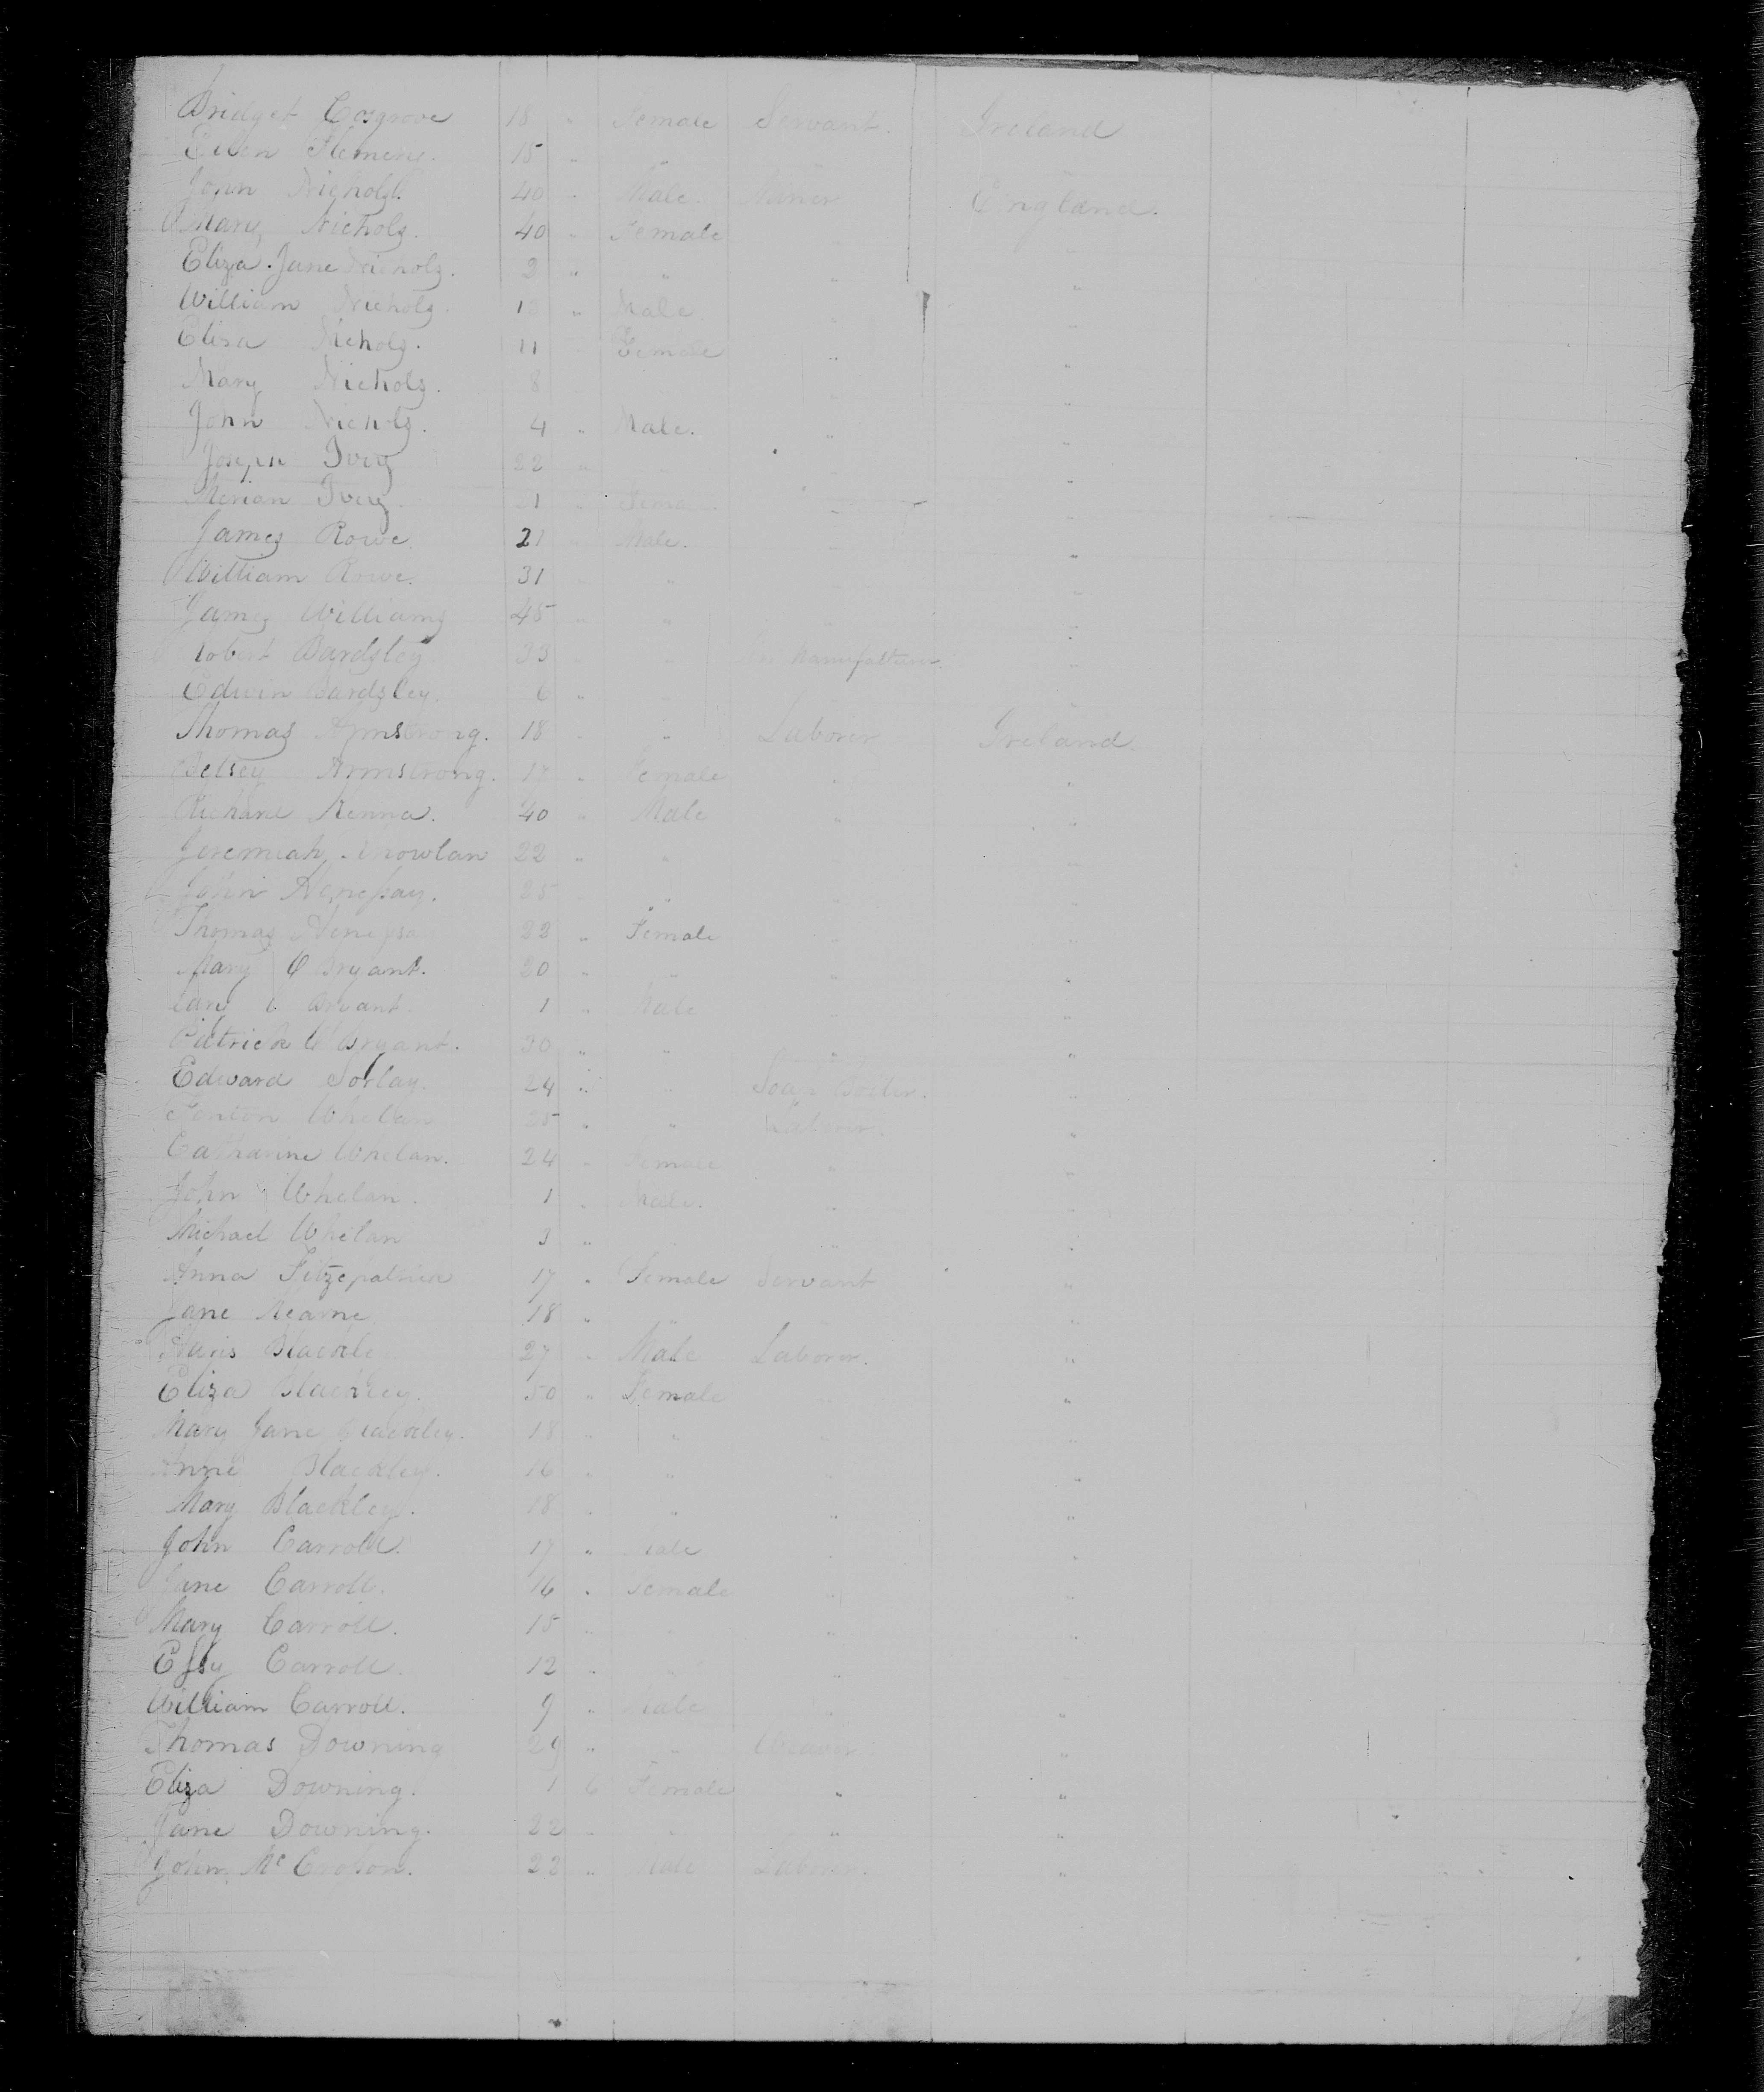 Bridget Cosgrove 18 " Female Servant. Ireland
Ellen Flemeng. 15 "
John Nichols. 40 " Male. Miner England.
Mary Nichols. 40 " Female
Eliza Jane Nichols. 2 " " " "
William Nichols. 1 " Male " "
Elisa Nichols. 11 " Female " "
Mary Nichols. 8 " "
John Nichols. 4 " Male. " "
Joseph Ivey 22 " "
Ivey 21 " " "
James Rowe 21 " Male. " "
William Rowe. 31 " " "
James Williams 45 " " "
Robert Bardsley 33 " " Manufacturer "
Edwin Bardsley. 6 "
Thomas Armstrong. 18 " " Laborer Ireland.
Betsey Armstrong. 17 " Female " "
Kenna. 40 " Male " "
Jeremiah 22 " " "
John 25 " "
Thomas 22 " Female " "
Mary O Bryant. 20 " " " "
O Bryant. 1 " Male " "
Patrick O Bryant. 30 " " " "
Edward Sorlay. 24 " " Soap Boiler. "
Whelan 25 " " Laborer. "
Catharine Whelan. 24 " Female " "
John Whelan. 1 " Male. " "
Michael Whelan 3 " " "
Anna Fitzepatrick 17 " Female Servant "
Jane Kearne 18 " " "
Blackley 27 " Male Laborer. "
Eliza Blackley. 50 " Female "
Mary Jane Blackley. 18 " " "
Anne Blackley. 16 " " "
Mary Blackley. 18 " " " "
John Carroll. 17 " Male " "
Jane Carroll. 16 " Female " "
Mary Carroll. 15 " " " "
Carroll. 12 " " " "
William Carroll. 9 " Male " "
Thomas Downing 29 " " Weaver "
Eliza Downing. 1 6 Female " "
Jane Downing. 22 " " " "
John Mc 22 " Male Laborer. "